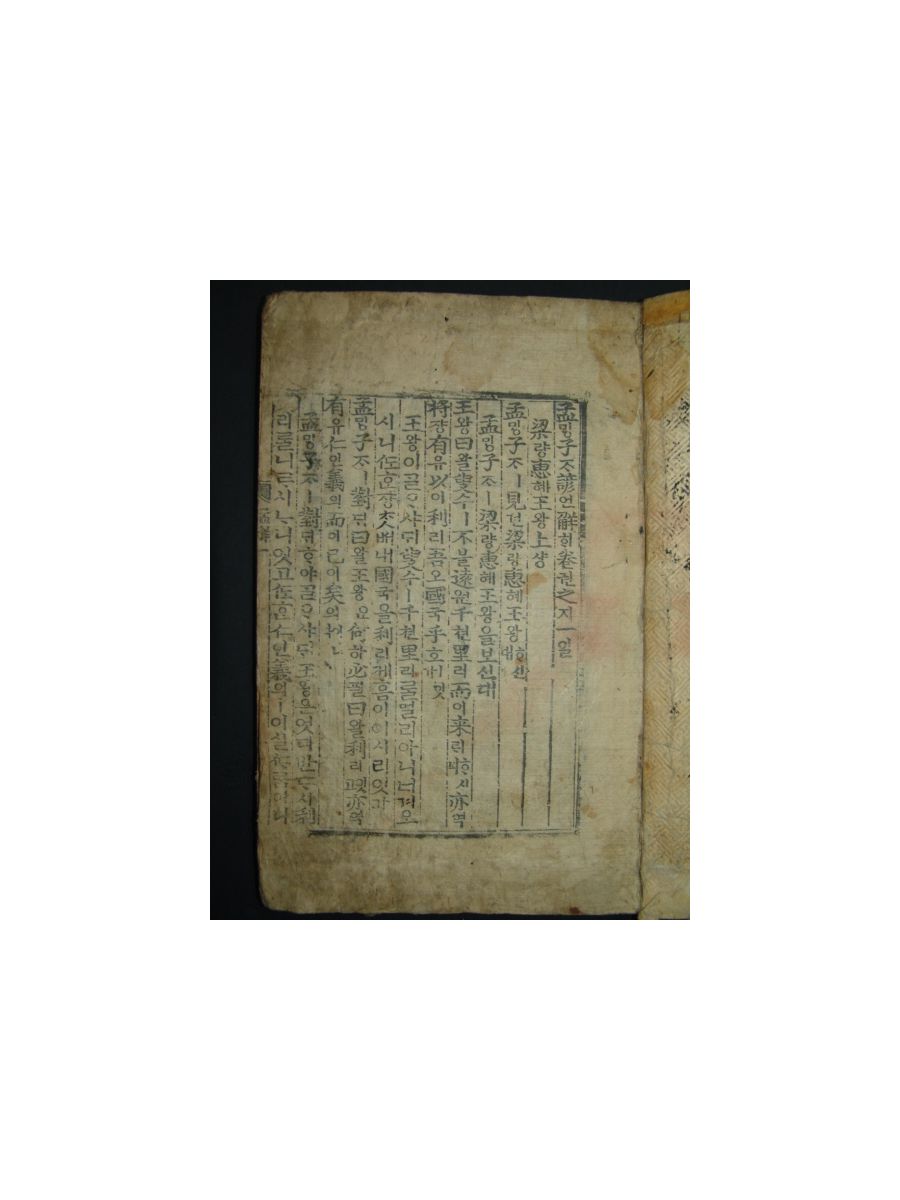 孟ᄆᆡᆼ子ᄌᆞ諺언解ᄒᆡ卷권之지一일
梁량惠혜王왕上샹
孟ᄆᆡᆼ子ᄌᆞㅣ見견梁량惠혜王왕ᄒᆞ신대
孟ᄆᆡᆼ子ᄌᆞㅣ梁량惠혜王왕을보신대
王왕曰왈叟수ㅣ不블遠원千쳔里리而이来ᄅᆡᄒᆞ시니亦역
將쟝有유以이利리吾오國국乎호잇가
王왕이ᄀᆞᆯᄋᆞ샤ᄃᆡ叟수ㅣ千쳔里리ᄅᆞᆯ멀리아니너겨오
시니ᄯᅩᄒᆞᆫ쟝ᄎᆞᆺᄡᅥ내國국을利리케홈이이시리잇가
孟ᄆᆡᆼ子ᄌᆞㅣ對ᄃᆡ曰왈王왕은何하必필曰왈利리잇고亦역
有유仁인義의而이已이矣의
孟ᄆᆡᆼ子ᄌᆞㅣ對ᄃᆡᄒᆞ야ᄀᆞᆯᄋᆞ샤ᄃᆡ王왕은엇디반ᄃᆞ시利
리ᄅᆞᆯ니ᄅᆞ시ᄂᆞ니잇고ᄯᅩᄒᆞᆫ仁인義의ㅣ이실